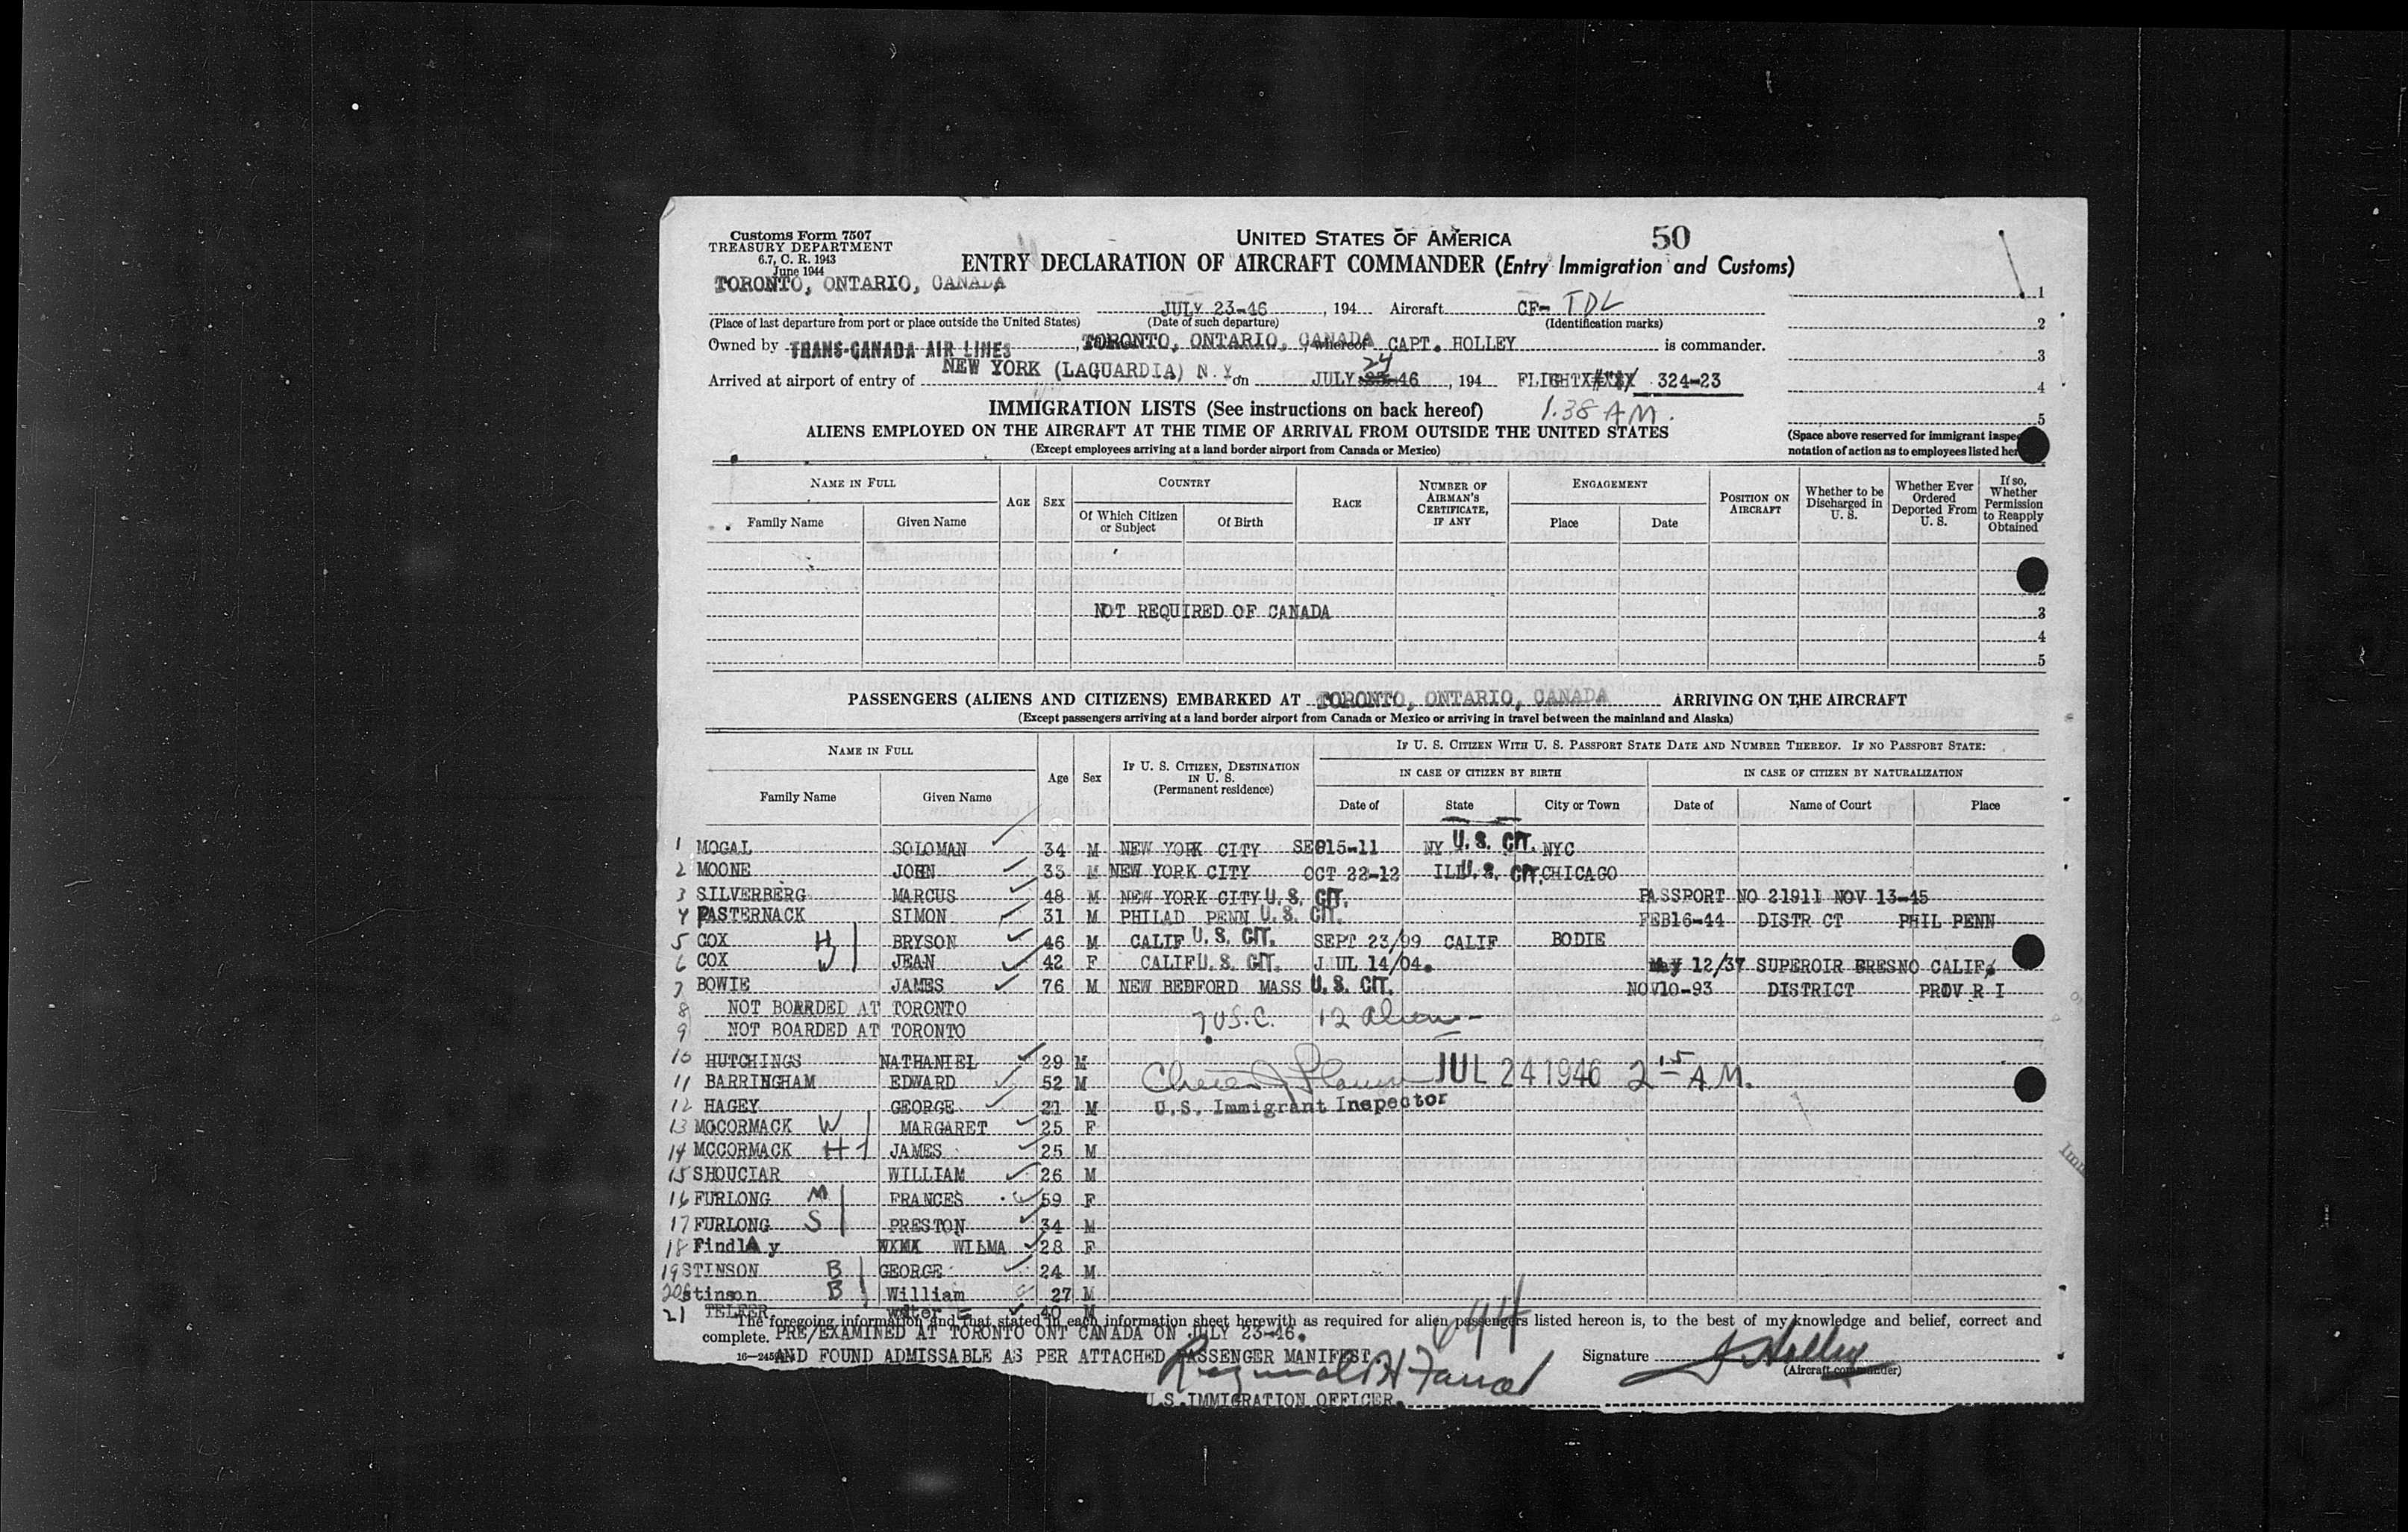 Customs Form 7507
TREASURY DEPARTMENT
6.7, C. R. 1943
June 1944
UNITED STATES OF AMERICA
50
ENTRY DECLARATION OF AIRCRAFT COMMANDER (Entry Immigration and Customs)
TORONTO, ONTARIO, CANADA
JULY 23-46, 194 Aircraft CF- TDL
1
(Place of last departure from port or place outside the United States) (Date of such departure) (Identification marks)
2
Owned by TRANS-CANADA AIR LINES, TORONTO, ONTARIO, CANADA whereof CAPT. HOLLEY is commander.
3
Arrived at airport of entry of NEW YORK (LAGUARDIA) N.Y. on JULY 24 46, 194 FLIGHT 324-23
4
IMMIGRATION LISTS (See instructions on back hereof) 1.38 AM.
5
ALIENS EMPLOYED ON THE AIRCRAFT AT THE TIME OF ARRIVAL FROM OUTSIDE THE UNITED STATES
(Except employees arriving at a land border airport from Canada or Mexico)
(Space above reserved for immigrant inspe
notation of action as to employees listed her
NAME IN FULL
Family Name Given Name
AGE SEX
COUNTRY
Of Which Citizen or Subject Of Birth
RACE
NUMBER OF AIRMAN'S CERTIFICATE, IF ANY
ENGAGEMENT
Place Date
POSITION ON AIRCRAFT
Whether to be Discharged in U. S.
Whether Ever Ordered Deported From U. S.
If so, Whether Permission to Reapply Obtained
NOT REQUIRED OF CANADA 3
4
5
PASSENGERS (ALIENS AND CITIZENS) EMBARKED AT TORONTO, ONTARIO, CANADA ARRIVING ON THE AIRCRAFT
(Except passengers arriving at a land border airport from Canada or Mexico or arriving in travel between the mainland and Alaska)
NAME IN FULL
Family Name Given Name
Age Sex
IF U. S. CITIZEN, DESTINATION IN U. S. (Permanent residence)
IF U. S. CITIZEN WITH U. S. PASSPORT STATE DATE AND NUMBER THEREOF. IF NO PASSPORT STATE:
IN CASE OF CITIZEN BY BIRTH IN CASE OF CITIZEN BY NATURALIZATION
Date of State City or Town Date of Name of Court Place
1 MOGAL SOLOMAN 34 M NEW YORK CITY SEP15-11 NY U. S. CIT. NYC
2 MOONE JOHN 33 M NEW YORK CITY OCT 22-12 ILL U. S. CIT. CHICAGO
3 SILVERBERG MARCUS 48 M NEW YORK CITY U. S. CIT. PASSPORT NO 21911 NOV 13-45
4 PASTERNACK SIMON 31 M PHILAD PENN U. S. CIT. FEB16-44 DISTR CT PHIL PENN
5 COX H BRYSON 46 M CALIF U. S. CIT. SEPT 23/99 CALIF BODIE
6 COX W JEAN 42 F CALIF U. S. CIT. JUL 14/04. May 12/37 SUPEROIR FRESNO CALIF.
7 BOWIE JAMES 76 M NEW BEDFORD MASS U. S. CIT. NOV10-93 DISTRICT PROV R I
8 NOT BOARDED AT TORONTO 7 U.S.C. 12 Aliens
9 NOT BOARDED AT TORONTO
10 HUTCHINGS NATHANIEL 29 M
JUL 24 1946 2 15 A.M.
11 BARRINGHAM EDWARD 52 M
12 HAGEY GEORGE 21 M U.S. Immigrant Inspector
13 MCCORMACK W MARGARET 25 F
14 MCCORMACK H JAMES 25 M
15 SHOUCIAR WILLIAM 26 M
16 FURLONG M FRANCES 59 F
17 FURLONG S PRESTON 34 M
18 FindlAy WILMA 28 F
19 STINSON B GEORGE 24 M
20 stinson B William 27 M
21 TELFER walter 40 M
The foregoing information and that stated in each information sheet herewith as required for alien passengers listed hereon is, to the best of my knowledge and belief, correct and
complete. PRE/EXAMINED AT TORONTO ONT CANADA ON JULY 23-46.
AND FOUND ADMISSABLE AS PER ATTACHED PASSENGER MANIFEST.
Signature J Holley
(Aircraft commander)
U.S. IMMIGRATION OFFICER.